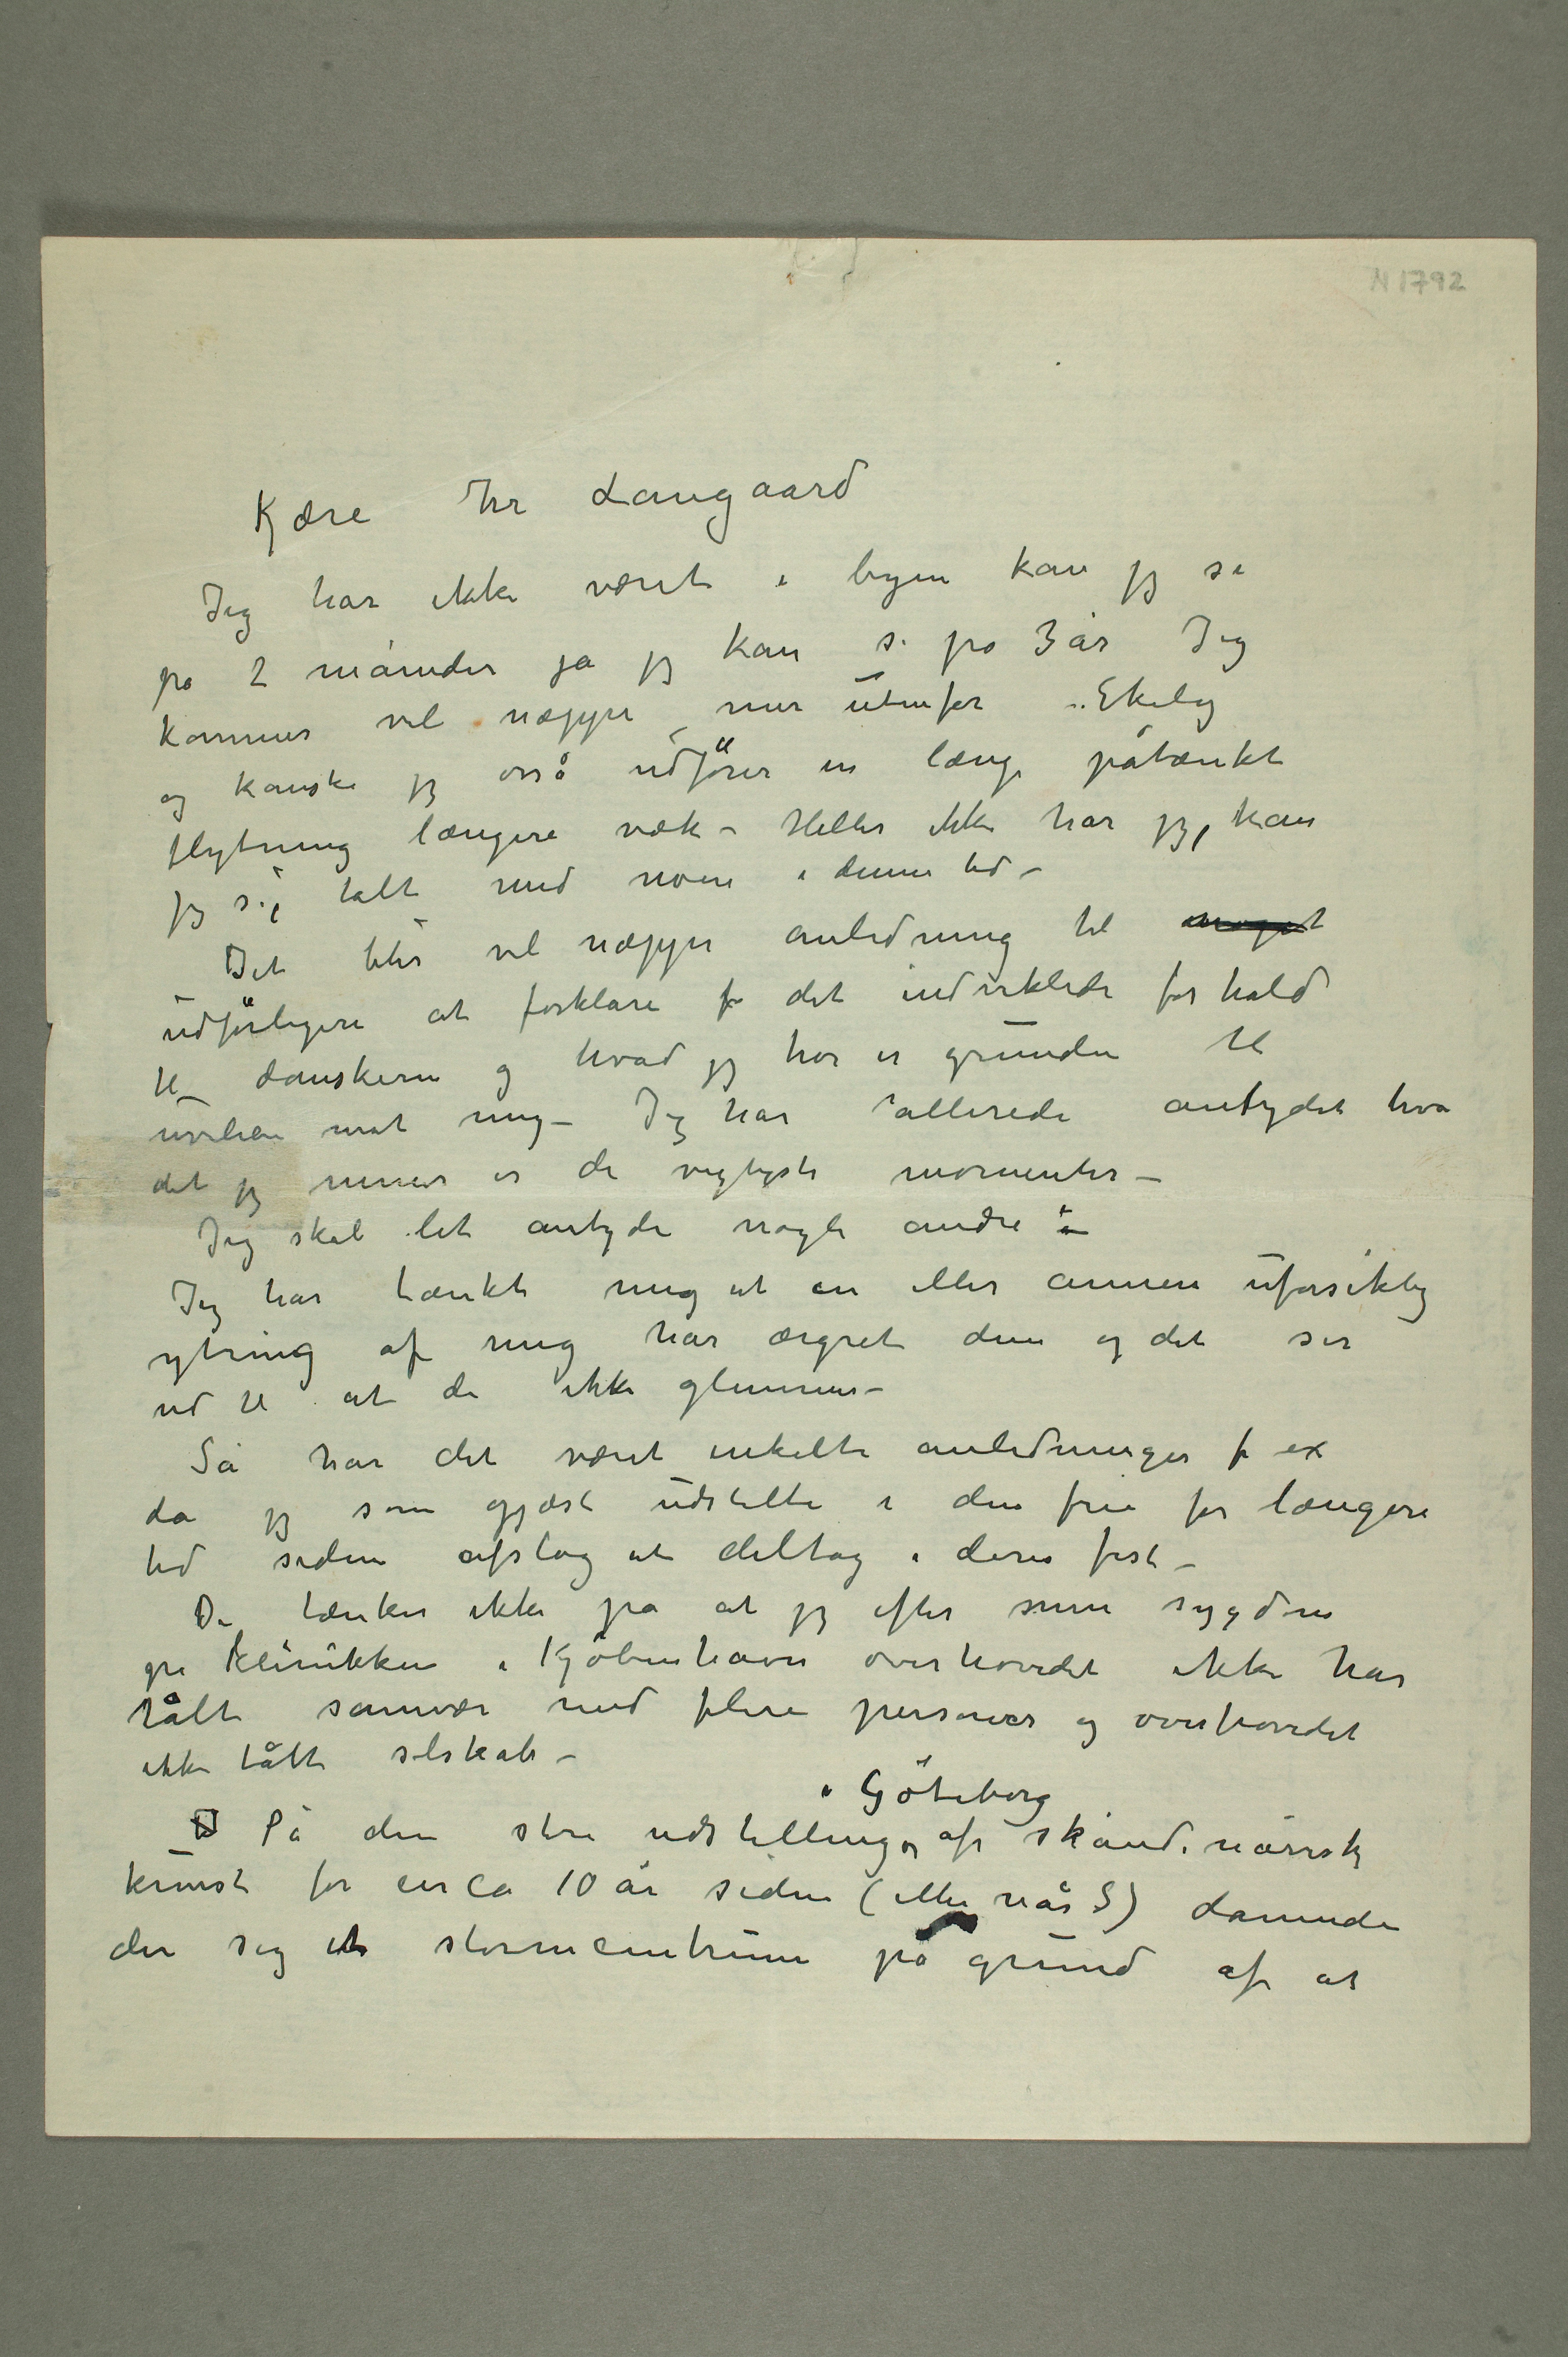 N 1792
Kjære Hr Langaard
Jeg har ikke været i byen kan jeg si
på 2 måneder ja jeg kan si på 3 år Jeg
kommer vel neppe mer utenfor Ekely
og kanske jeg osså udfører en længe påtænkt
flytning længere væk – Heller ikke har jeg, kan
jeg si, talt med noen i denne tid –
Det blir vel neppe anledning til noget
udførligere at forklare det indviklede forhold
til danskerne og hvad jeg tror er grunden til
uviljen mot mig – Jeg har allerede antydet hva
det jeg mener er de vigtigste momenter –
Jeg skal let antyde nogle andre :
Jeg har tænkt mig at en eller annen uforsiktig
ytring af mig har ærgret dem og det ser
ud til at de ikke glemmer –
Så har det været enkelte anledninger f ex
da jeg som gjæst udstillte i den frie for længere
tid siden afslog at deltag i deres fest –
De tænker ikke på at jeg efter min sygdom
på klinikken i Kjøbenhavn overhovedet ikke har
tålt samvær med flere personer og overhovedet
ikke tålt selskab –
i Göteborg
På den store udstilling af skandinavisk
kunst for circa 10 år siden (eller når ?) dannede
der sig et stormcentrum på grund af at